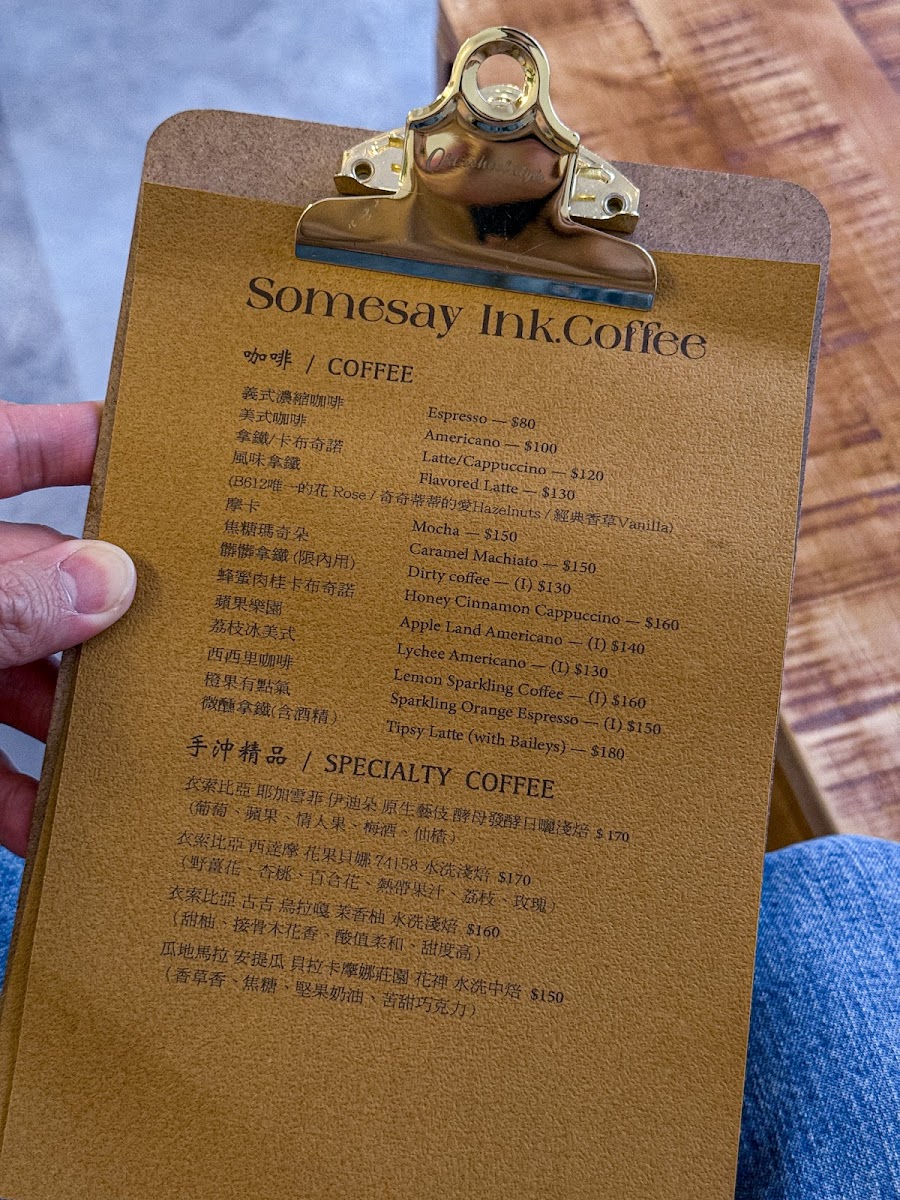 Somesay Ink.Coffee
咖啡 / COFFEE
義式濃縮咖啡 Espresso — $80
美式咖啡 Americano — $100
拿鐵/卡布奇諾 Latte/Cappuccino — $120
風味拿鐵 Flavored Latte — $130
(B612唯一的花 Rose / 奇奇蒂蒂的愛Hazelnuts / 經典香草Vanilla)
摩卡 Mocha — $150
焦糖瑪奇朵 Caramel Machiato — $150
髒髒拿鐵 (限內用) Dirty coffee — (I) $130
蜂蜜肉桂卡布奇諾 Honey Cinnamon Cappuccino — $160
蘋果樂園 Apple Land Americano — (I) $140
荔枝冰美式 Lychee Americano — (I) $130
西西里咖啡 Lemon Sparkling Coffee — (I) $160
橙果有點氣 Sparkling Orange Espresso — (I) $150
微醺拿鐵(含酒精) Tipsy Latte (with Baileys) — $180
手沖精品 / SPECIALTY COFFEE
衣索比亞 耶加雪菲 伊迪朵 原生藝伎 酵母發酵日曬淺焙 $170
(葡萄、蘋果、情人果、梅酒、仙楂)
衣索比亞 西達摩 花果貝娜 74158 水洗淺焙 $170
(野薑花、杏桃、百合花、熱帶果汁、荔枝、玫瑰)
衣索比亞 古吉 烏拉嘎 茉香柚 水洗淺焙 $160
(甜柚、接骨木花香、酸值柔和、甜度高)
瓜地馬拉 安提瓜 貝拉卡摩娜莊園 花神 水洗中焙 $150
(香草香、焦糖、堅果奶油、苦甜巧克力)